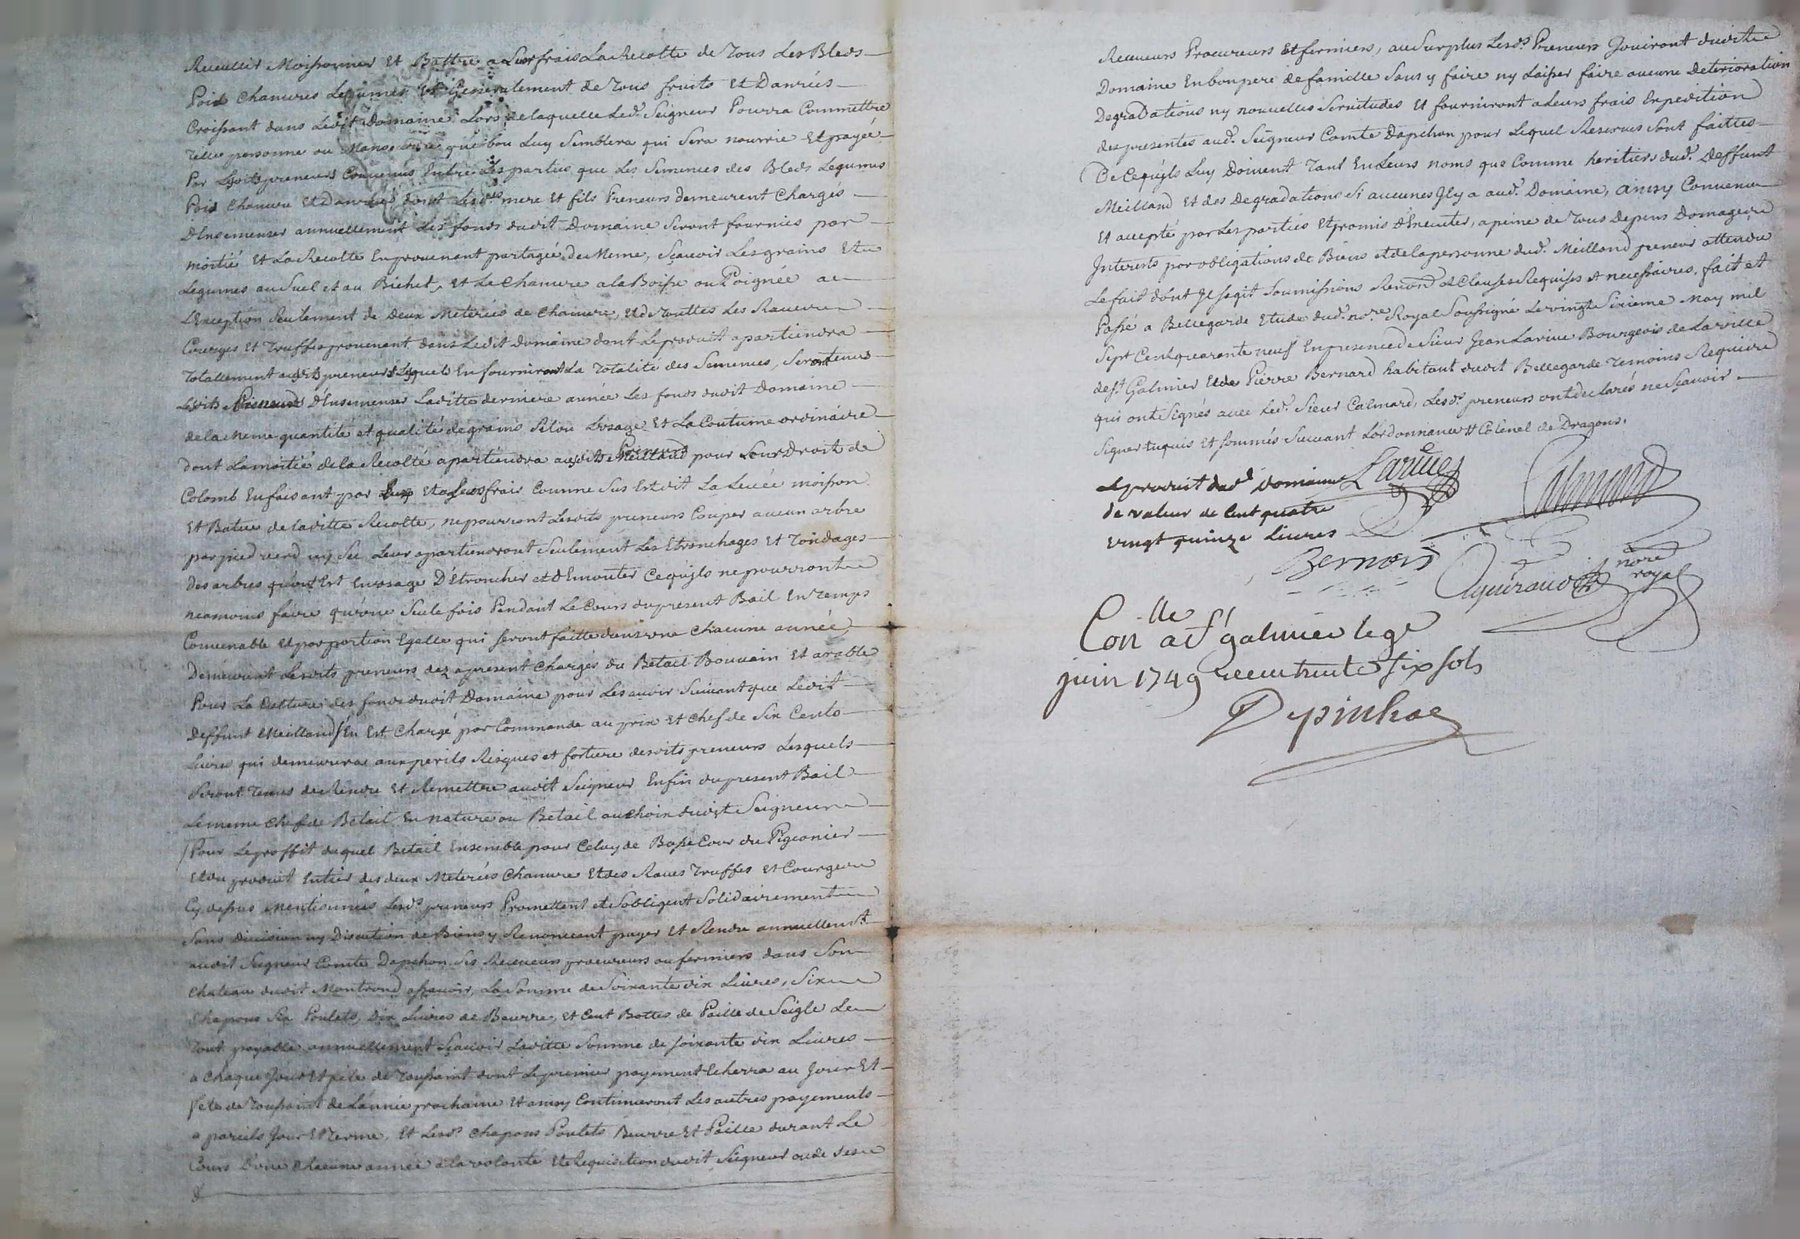 Recueillir Moissonner Et Battre a Leur frais La Recolte de Tous Les Bleds
Pois Chanvres Legumes Et Generalement de Tous fruits Et Danrées
Croissant dans Ledit Domaine Lors de laquelle Led. Seigneur Pourra Commettre
Telle personne ou que bon Luy Semblera qui Sera nourrie Et payée
Par Lesdits preneurs Convenus Entre Les parties que Les Semences des Bleds Legumes
Pois Chanvre Et Danrées dont Lesd. mere et fils Preneurs demeurent Chargés
D'Ensemencer annuellement Les fonds dudit Domaine Seront fournies par
moitié Et La Recolte En provenant partagée de Meme, Sçavoir Les grains Et
Legumes au Suel et au Bichet, Et Le Chanvre a la Boisse ou Poignée a
L'Exception Seulement de Deux Meterées de Chanvre, Et de Touttes Les Raves
Courges Et Truffes provenant dans Ledit Domaine dont Le produit apartiendra
Totallement auxdits preneurs Lesquels En fourniront La Totalité des Semences, Seront tenus
Lesdits Preneurs D'Ensemencer Laditte derniere année Les fonds dudit Domaine
de la Meme quantité et qualité de grains Selon L'usage Et La Coutume ordinaire
dont La moitié de la Recolte apartiendra auxdits Meilland Preneurs pour Leur Droit de
Colomb En faisant par Eux Et a Leur frais Comme Sus Est dit La Levée moisson
Et Batue de laditte Recolte, ne pourront Lesdits preneurs Couper aucun arbre
par pied verd ny Sec Leur apartiendront Seulement Les Etronchages Et Tondages
des arbres qu'il Est En usage D'Etroncher et d'Emonder Ce qu'ils ne pourront
neamoins faire qu'une Seule fois Pendant Le Cours du present Bail En Temps
Convenable Et par portion Egalle qui Seront faitte dans une Chacune année,
Demeurent Lesdits preneurs dez apresent Chargés du Betail Bouvain Et arable
Pour La Culture des fonds dudit Domaine pour Les avoir Suivant que Ledit
Deffunt Meilland En Est Chargé par Commande au prix Et Chef de Six Cents
Livres qui demeurera aux perils Risques et forture desdits preneurs Lesquels
Seront Tenus de Rendre Et Remettre audit Seigneur Enfin du present Bail
Le meme Chef de Betail En nature ou Betail au choix dudit Seigneur
Pour Le proffit duquel Betail Ensemble pour Celuy de Basse Cour du Pigeonier
Et du produit Entier des deux Meterées Chanvre Et des Raves Truffes Et Courges
Cy dessus Mentionnées Lesd. preneurs Promettent et S'obligent Solidairement
Sans division ny Discution de Biens y Renonceant payer Et Rendre annuellement
audit Seigneur Comte Dapchon Ses Receveurs procureurs ou fermiers dans Son
Chateau dudit Montrond assavoir, La Somme de Soixante dix Livres, Six
Chapons Six Poulets, Dix Livres de Beurre, Et Cent Bottes de Paille de Seigle Le
Tout payable annuellement Sçavoir Laditte Somme de soixante dix Livres
a Chaque Jour Et fete de Toussaint dont Le premier payement Echerra au Jour Et
fete de Toussaint de L'année prochaine Et ainsy Continueront Les autres payements
a pareils Jour Et Terme, Et Lesd. Chapons Poulets Beurre Et Paille durant Le
Cours D'une Chacune année a la volonté Et Requisition dudit Seigneur ou de Ses
Receveurs Procureurs Et fermiers, au Surplus Lesd. Preneurs Jouiront dudit
Domaine En bon pere de famille Sans y faire ny Laisser faire aucune deterioration
Degradations ny nouvelles Servitudes Et fourniront a Leurs frais Expedition
des presentes aud. Seigneur Comte Dapchon pour Lequel Reserves Sont faittes
De Ce qu'ils Luy Doivent Tant En Leurs noms que Comme heritiers dud. Deffunt
Meilland Et des Degradations Si aucunes Il y a aud. Domaine, ainsy Convenu
Et accepté par Les parties Et promis d'Executer, a peine de Tous Depens Domages
Interets par obligations de Biens et de la personne dud. Meilland preneur attendu
Le fait dont Il S'agit Soumissions Renonc. et Clauses Requises et necessaires, fait et
Passé a Bellegarde Etude dud. nore Royal Soussigné Le vingt Sixieme May mil
Sept Cent quarante neuf En presence de Sieur Jean Larüe Bourgeois de La ville
de St Galmier Et de Pierre Bernard habitant dudit Bellegarde Temoins Requis
qui ont Signés avec Led. Sieur Calmard, Lesd. preneurs ont declarés ne Sçavoir
Signer Enquis Et Sommés Suivant L'ordonnance Colonel de Dragons.
Le produit dud. Domaine
de valeur de Cent quatre
vingt quinze Livres
Larüe
Calmard
Bernard
nore
royal
Con.lle a St galmier le 9e
juin 1749 receu trente six sols